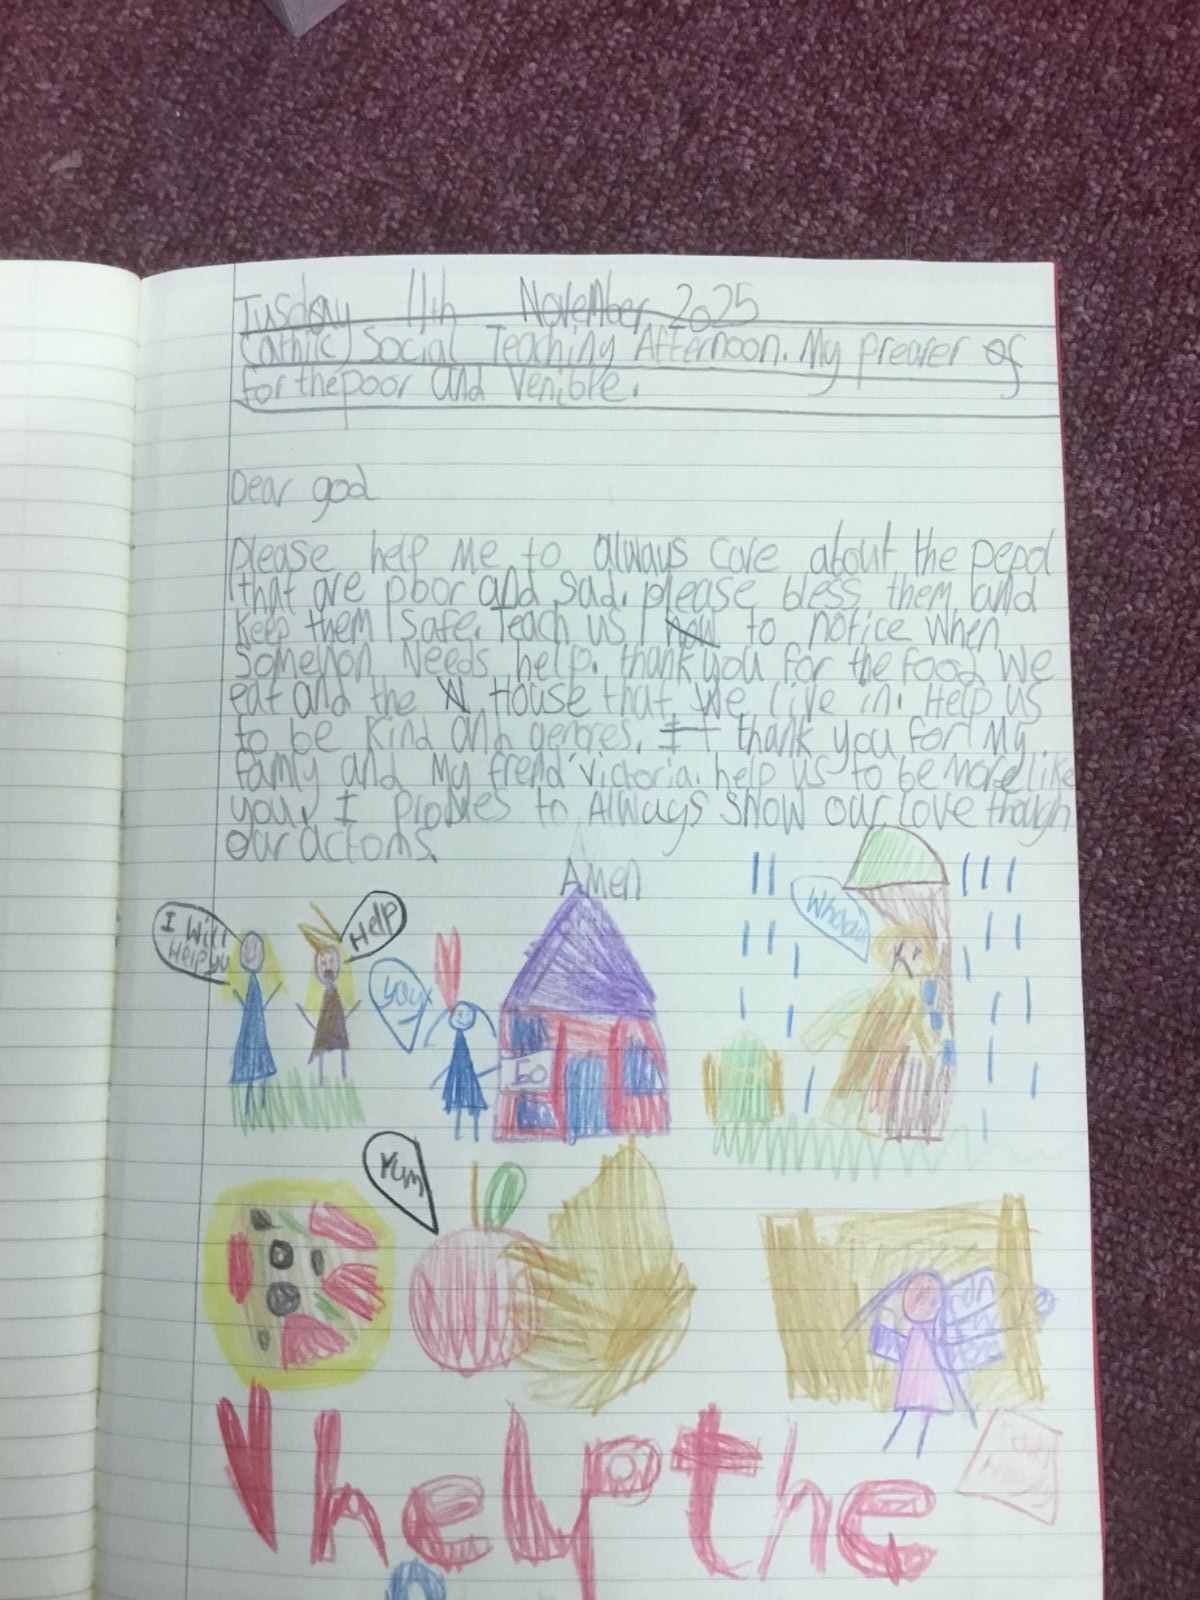 Tusday 11th November 2025
Cathilc Social Teaching Afternoon. My prearer of
for the poor and venible.
Dear god
please help me to always care about the pepol
that are poor and sad. please bless them and
keep them safe. Teach us how to notice when
someyon needs help. thank you for the food we
eat and the W House that we live in. Help us
to be kind and genores. It thank you for My
famly and My frend victoria. help us to be more like
you. I promes to Always show our love though
our actoms.
Amen
I Will
Help you
Help
yay
Go
Whoaa
Yum
help the